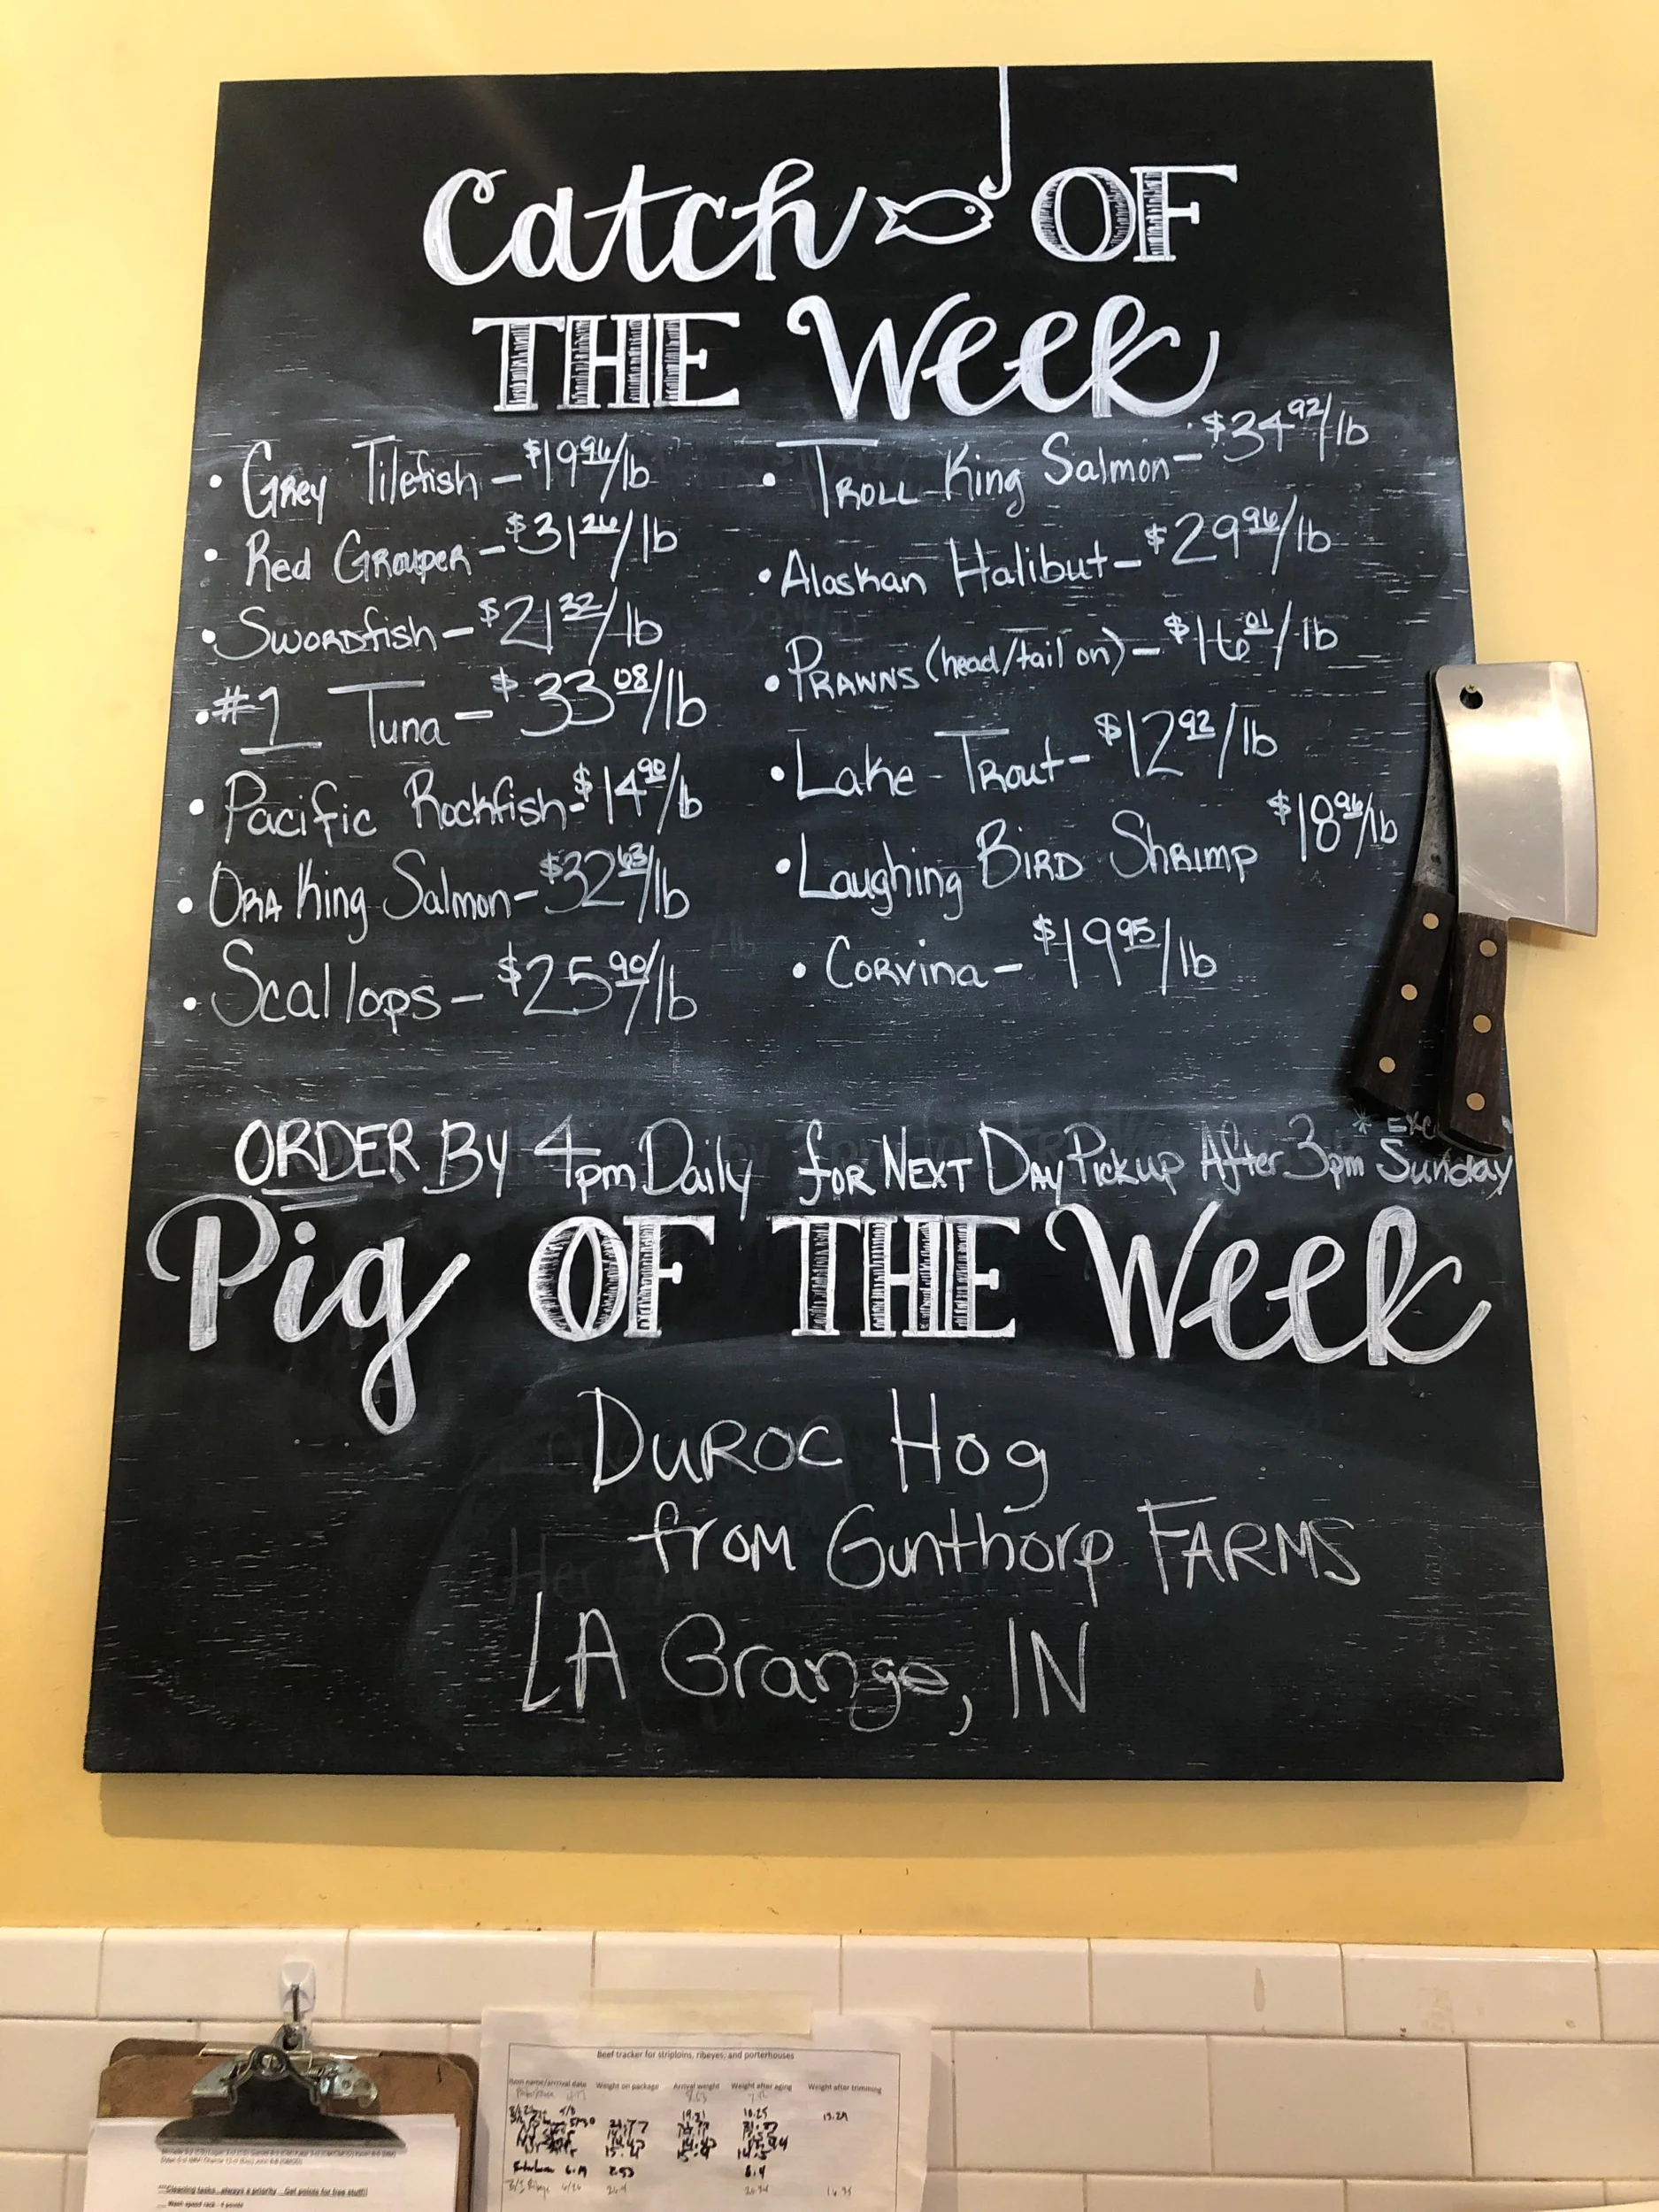 Catch OF
THE Week
• Grey Tilefish - $19.96/lb
• Red Grouper - $31.26/lb
• Swordfish - $21.32/lb
• #1 Tuna - $33.08/lb
• Pacific Rockfish - $14.90/lb
• Ora King Salmon - $32.63/lb
• Scallops - $25.90/lb
• Troll King Salmon - $34.92/lb
• Alaskan Halibut - $29.96/lb
• Prawns (head/tail on) - $16.01/lb
• Lake Trout - $12.92/lb
• Laughing Bird Shrimp $18.96/lb
• Corvina - $19.95/lb
ORDER By 4pm Daily for Next Day Pickup After 3pm * Exc Sunday
Pig OF THE Week
Duroc Hog
from Gunthorp FARMS
LA Grange, IN
Beef tracker for striploins, ribeyes, and porterhouses
Item name/arrival date Weight on package Arrival weight Weight after aging Weight after trimming
19.21 18.25 13.29
2.53 8.4
***Cleaning tasks always a priority Get points for free stuff!